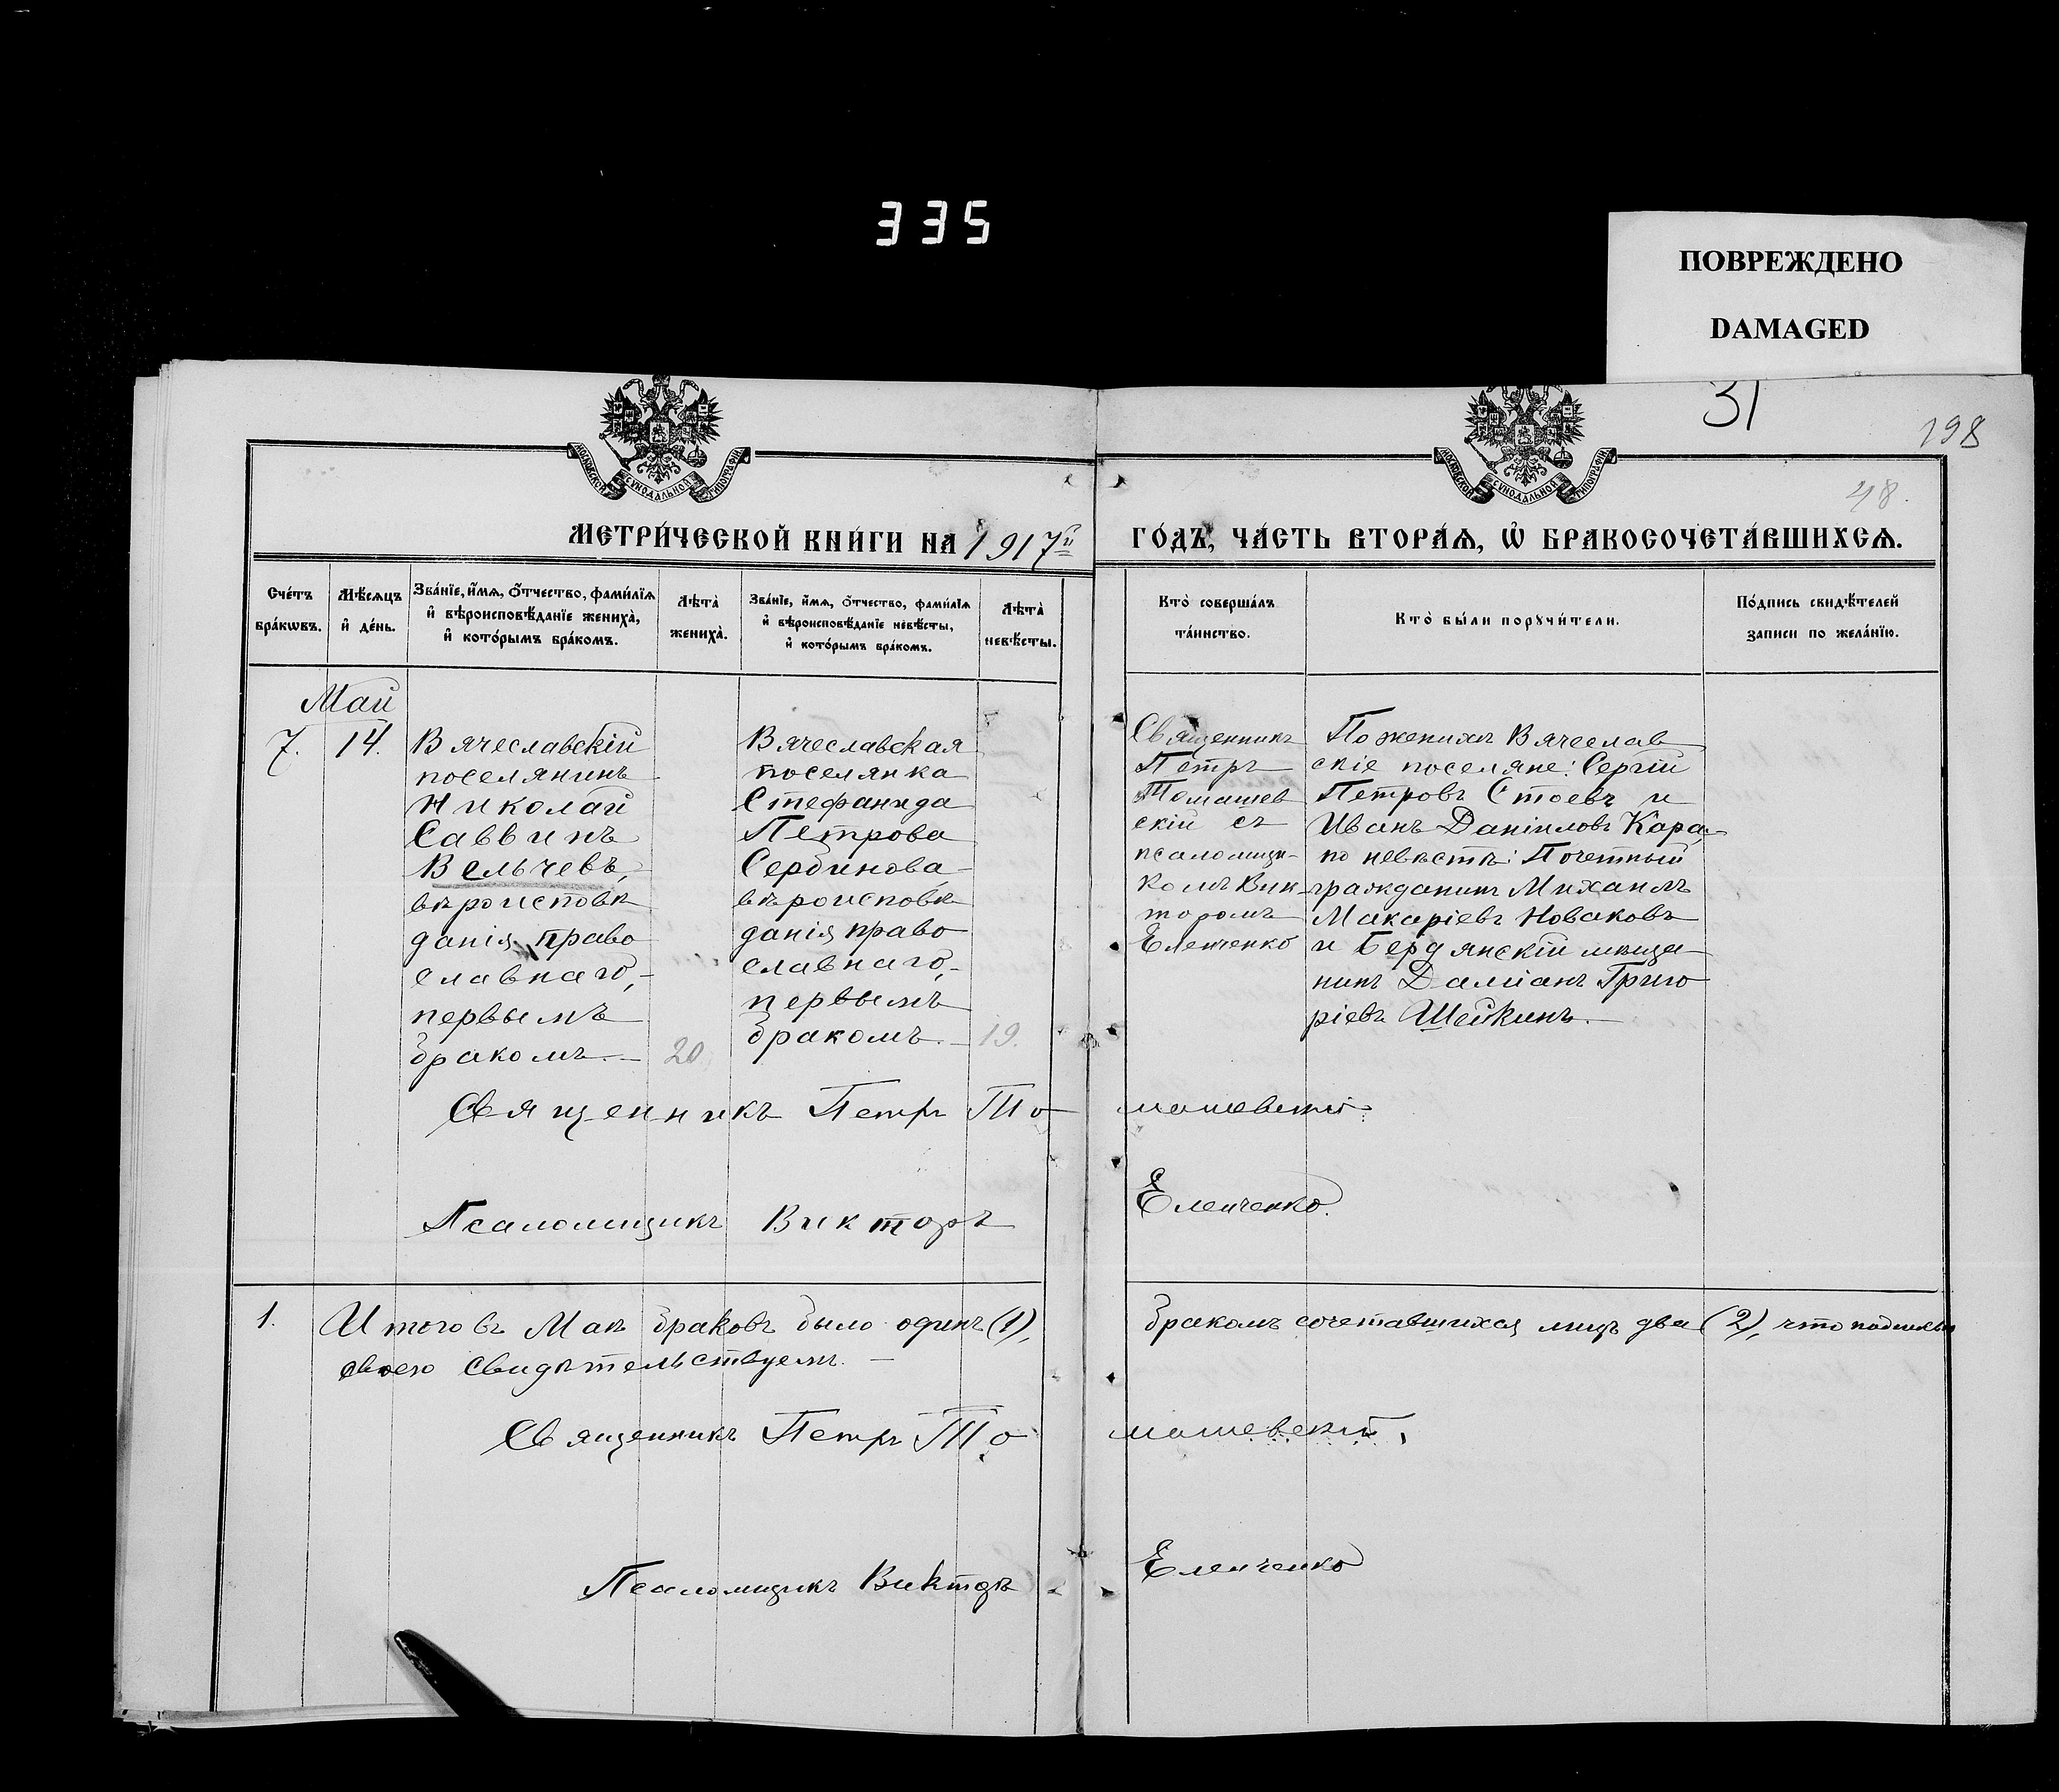 335
ПОВРЕЖДЕНО
DAMAGED
31
198
48.
МОСКОВСКОЙ СѴНОДАЛЬНОЙ ТИПОГРАФІИ
МОСКОВСКОЙ СѴНОДАЛЬНОЙ ТИПОГРАФІИ
МЕТРИ́ЧЕСКОЙ КНИ́ГИ НА 1917й
ГО́ДЪ, ЧА́СТЬ ВТОРА́Ѧ, Ѽ БРАКОСОЧЕТА́ВШИХСѦ.
Сче́тъ бра́кѡвъ.
Мѣ́сѧцъ и҆ де́нь.
Зва́нїе, и҆́мѧ, ѻ҆́тчество, фами́лїѧ и҆ вѣроисповѣ́данїе жениха̀, и҆ кото́рымъ бра́комъ.
Лѣта̀ жениха̀.
Зва́нїе, и҆́мѧ, ѻ҆́тчество, фами́лїѧ и҆ вѣроисповѣ́данїе невѣ́сты, и҆ кото́рымъ бра́комъ.
Лѣта̀ невѣ́сты.
Кто̀ соверша́лъ та́инство.
Кто̀ бы́ли порꙋчи́тели.
По́дпись свидѣ́телей записи по жела́нїю.
Май
7.
14.
Вячеславскій
поселянинъ
Николай
Саввинъ
Вельчевъ,
вѣроисповѣ
данія право
славнаго,-
первымъ
бракомъ.-
20
Вячеславская
поселянка
Стефанида
Петрова
Сербинова
вѣроисповѣ
данія право
славнаго,-
первымъ
бракомъ.-
19.
Священникъ
Петръ
Томашев
скій съ
псаломщи-
комъ Вик-
торомъ
Еленченко
По женихѣ Вячеслав
скіе поселяне: Сергій
Петровъ Стоевъ и
Иванъ Даніиловъ Кара,-
по невѣстѣ: Почетный
гражданинъ Михаилъ
Макаріевъ Новаковъ
и Бердянскій мѣща-
нинъ Даміанъ Григо
ріевъ Шейкинъ.-
Священникъ Петръ То
машевскій.
Псаломщикъ Викторъ
Еленченко.
1.
Итого въ Маѣ браковъ было одинъ (1),
бракомъ сочетавшихся лицъ два (2), что подписью
своею свидѣтельствуемъ.-
Священникъ Петръ То
машевскій.
Псаломщикъ Викторъ
Еленченко